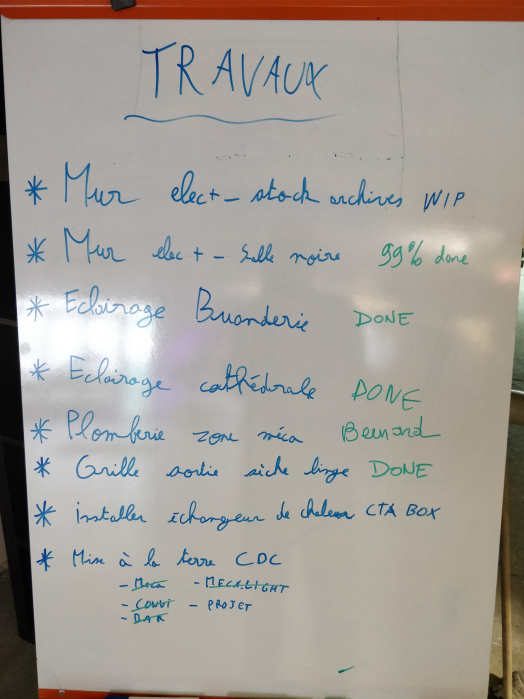 TRAVAUX
* Mur elec + - stock archives WIP
* Mur elec + - Salle noire 99% done
* Eclairage Buanderie DONE
* Eclairage cathédrale DONE
* Plomberie zone méca Bernard
* Grille sortie sèche linge DONE
* installer échangeur de chaleur CTA BOX
* Mise à la terre CDC
- Meca - MECA LIGHT
- COUVI - PROJET
- BAR